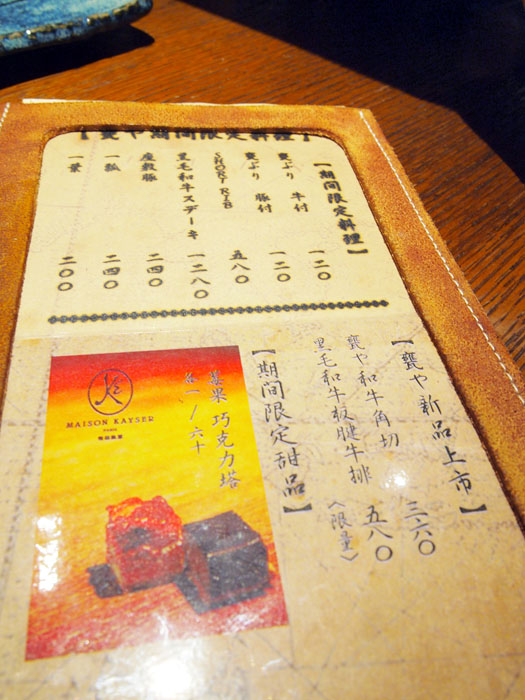 【甕や期間限定料理】
【期間限定料理】
甕ぶり 牛付 一二〇
甕ぶり 豚付 一二〇
SHORT RIB 五八〇
黒毛和牛ステーキ 一二八〇
座敷豚 二四〇
一狐 二四〇
一葉 二〇〇
【甕や新品上市】
甕や和牛角切 三六〇
黑毛和牛板腱牛排 五八〇
〈限量〉
【期間限定甜品】
巧克力塔
一/六十
MAISON KAYSER
PARIS